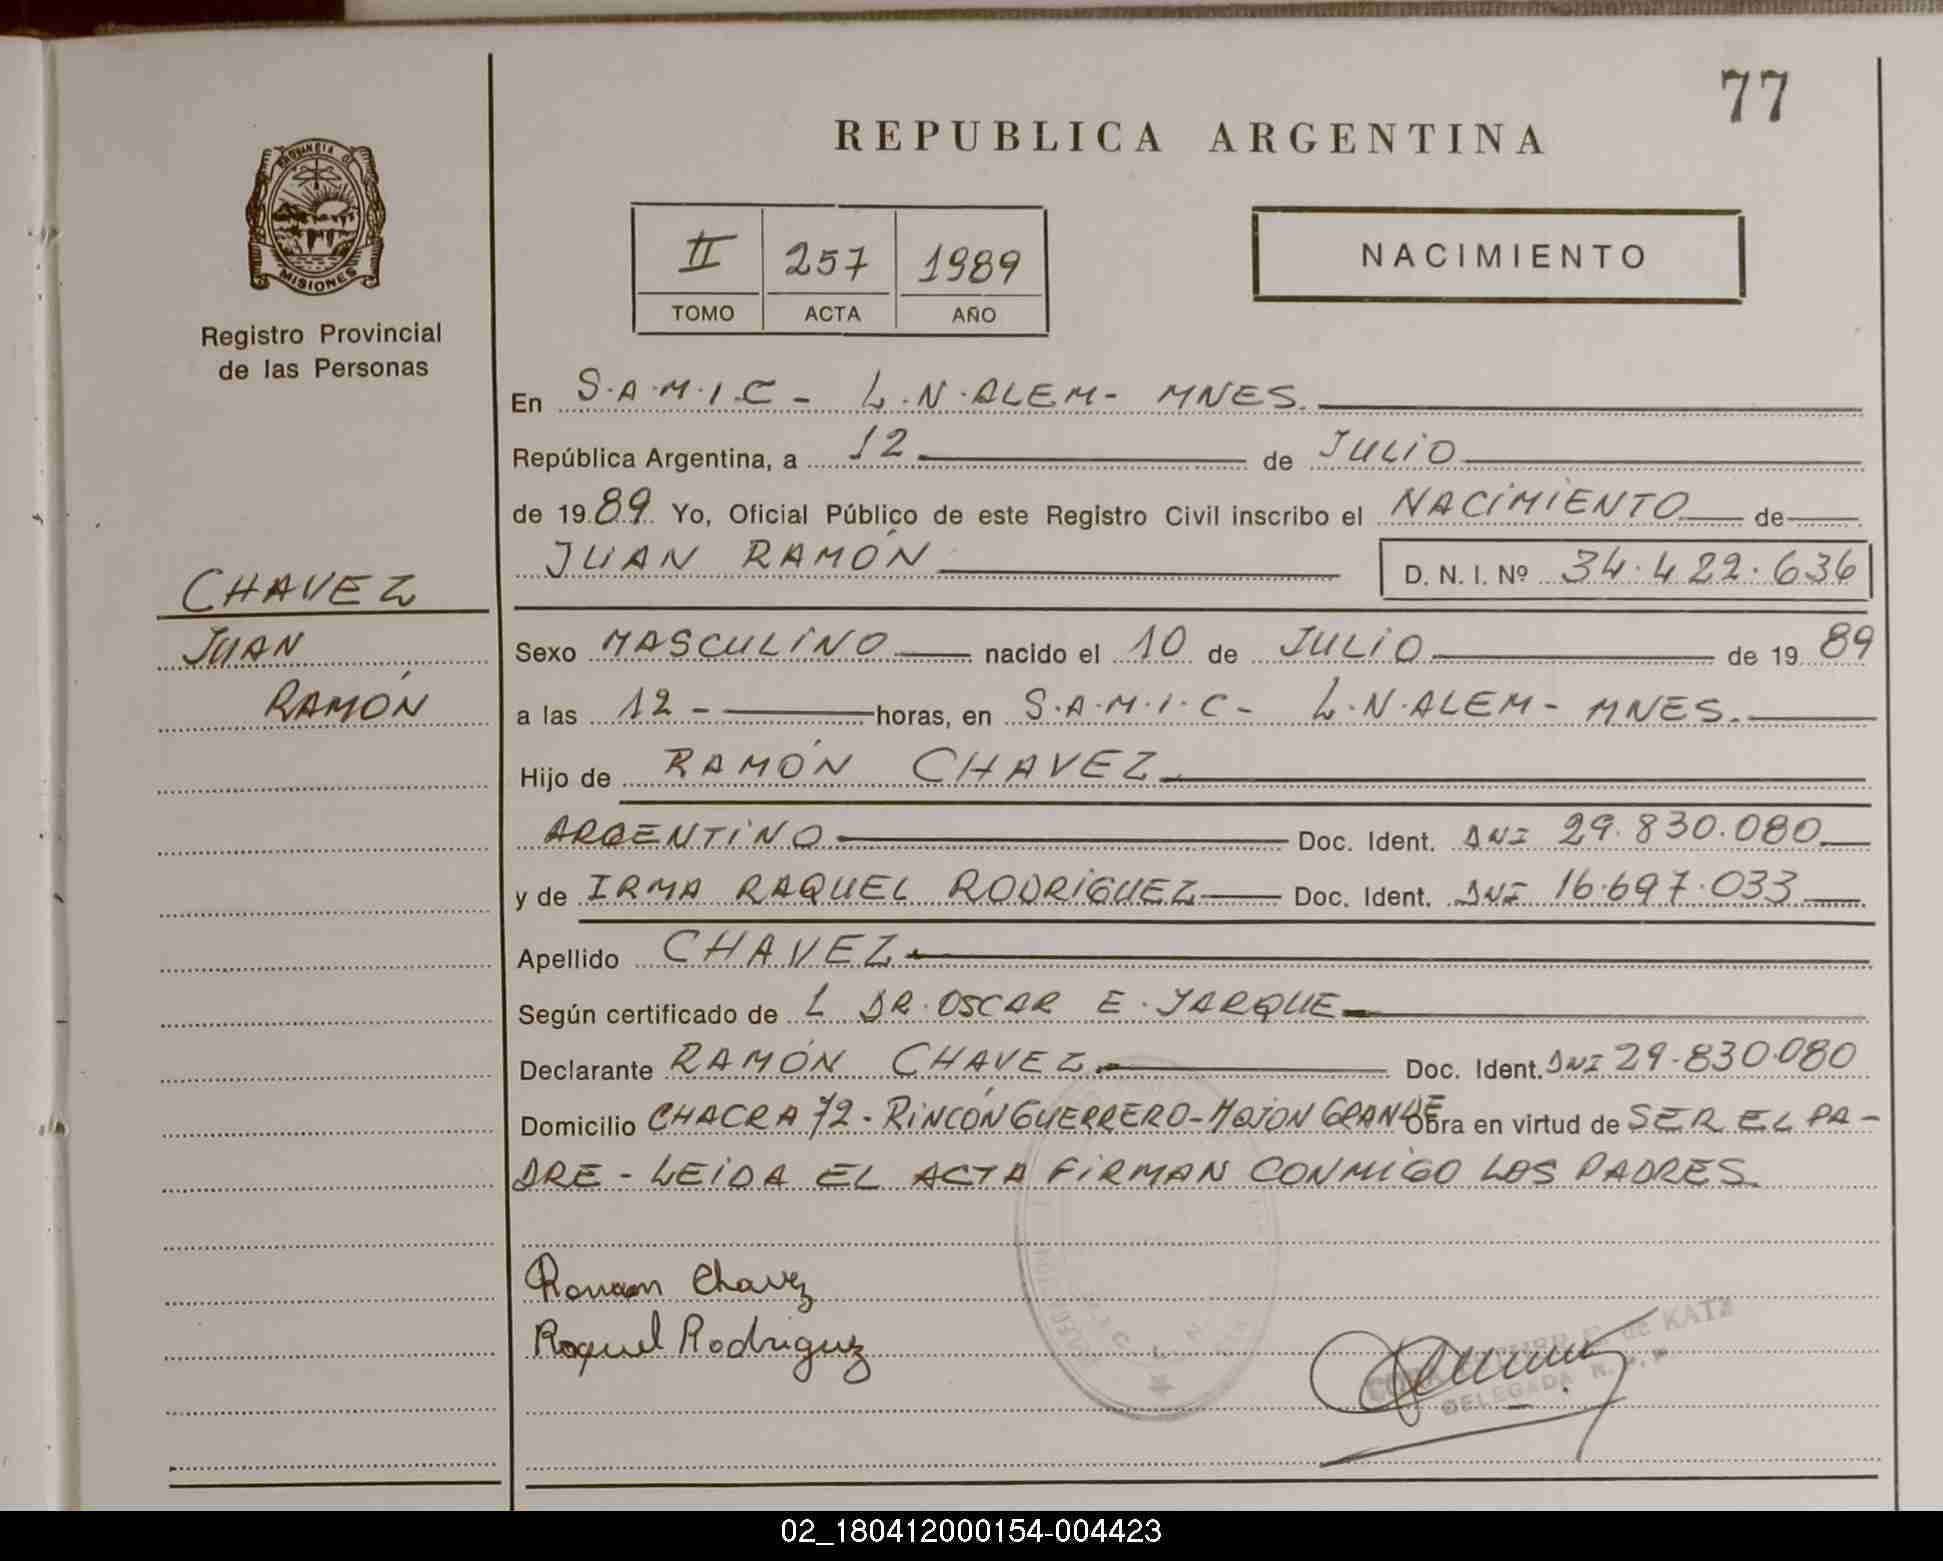 77
REPUBLICA ARGENTINA
PROVINCIA DE
MISIONES
Registro Provincial
de las Personas
II 257 1989
TOMO ACTA AÑO
NACIMIENTO
CHAVEZ
JUAN
RAMÓN
En S.A.M.I.C - L.N.ALEM - MNES.
República Argentina, a 12 de JULIO
de 1989 Yo, Oficial Público de este Registro Civil inscribo el NACIMIENTO de
JUAN RAMÓN D. N. I. Nº 34.422.636
Sexo MASCULINO nacido el 10 de JULIO de 1989
a las 12 - horas, en S.A.M.I.C - L.N.ALEM - MNES.
Hijo de RAMÓN CHAVEZ
ARGENTINO Doc. Ident. DNI 29.830.080
y de IRMA RAQUEL RODRÍGUEZ Doc. Ident. DNI 16.697.033
Apellido CHAVEZ
Según certificado de L DR. OSCAR E. YARQUE
Declarante RAMÓN CHAVEZ Doc. Ident. DNI 29.830.080
Domicilio CHACRA 72 - RINCÓN GUERRERO - MOJON GRANDE Obra en virtud de SER EL PA-
DRE - LEIDA EL ACTA FIRMAN CONMIGO LOS PADRES.
Ramon Chavez
Raquel Rodriguez
de KATZ
DELEGADA R. P. P.
02_180412000154-004423